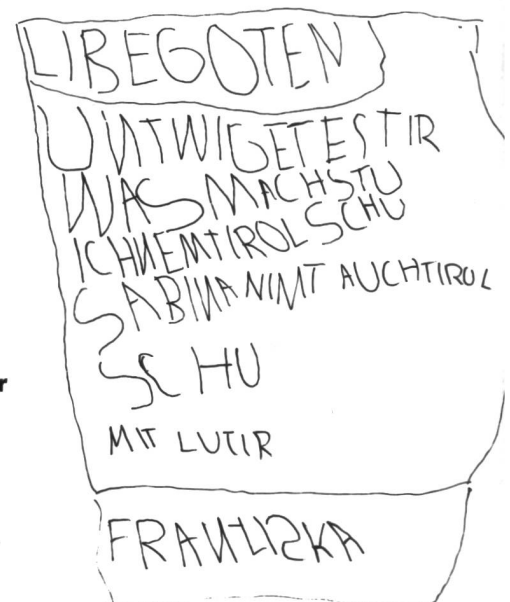 LIBEGOTEN
UNTWIGETESTIR
WAS MACHSTU
ICHNEMTIROLSCHU
SABINANIMT AUCHTIROL
SCHU
MIT LUTIR
FRANZISKA
r